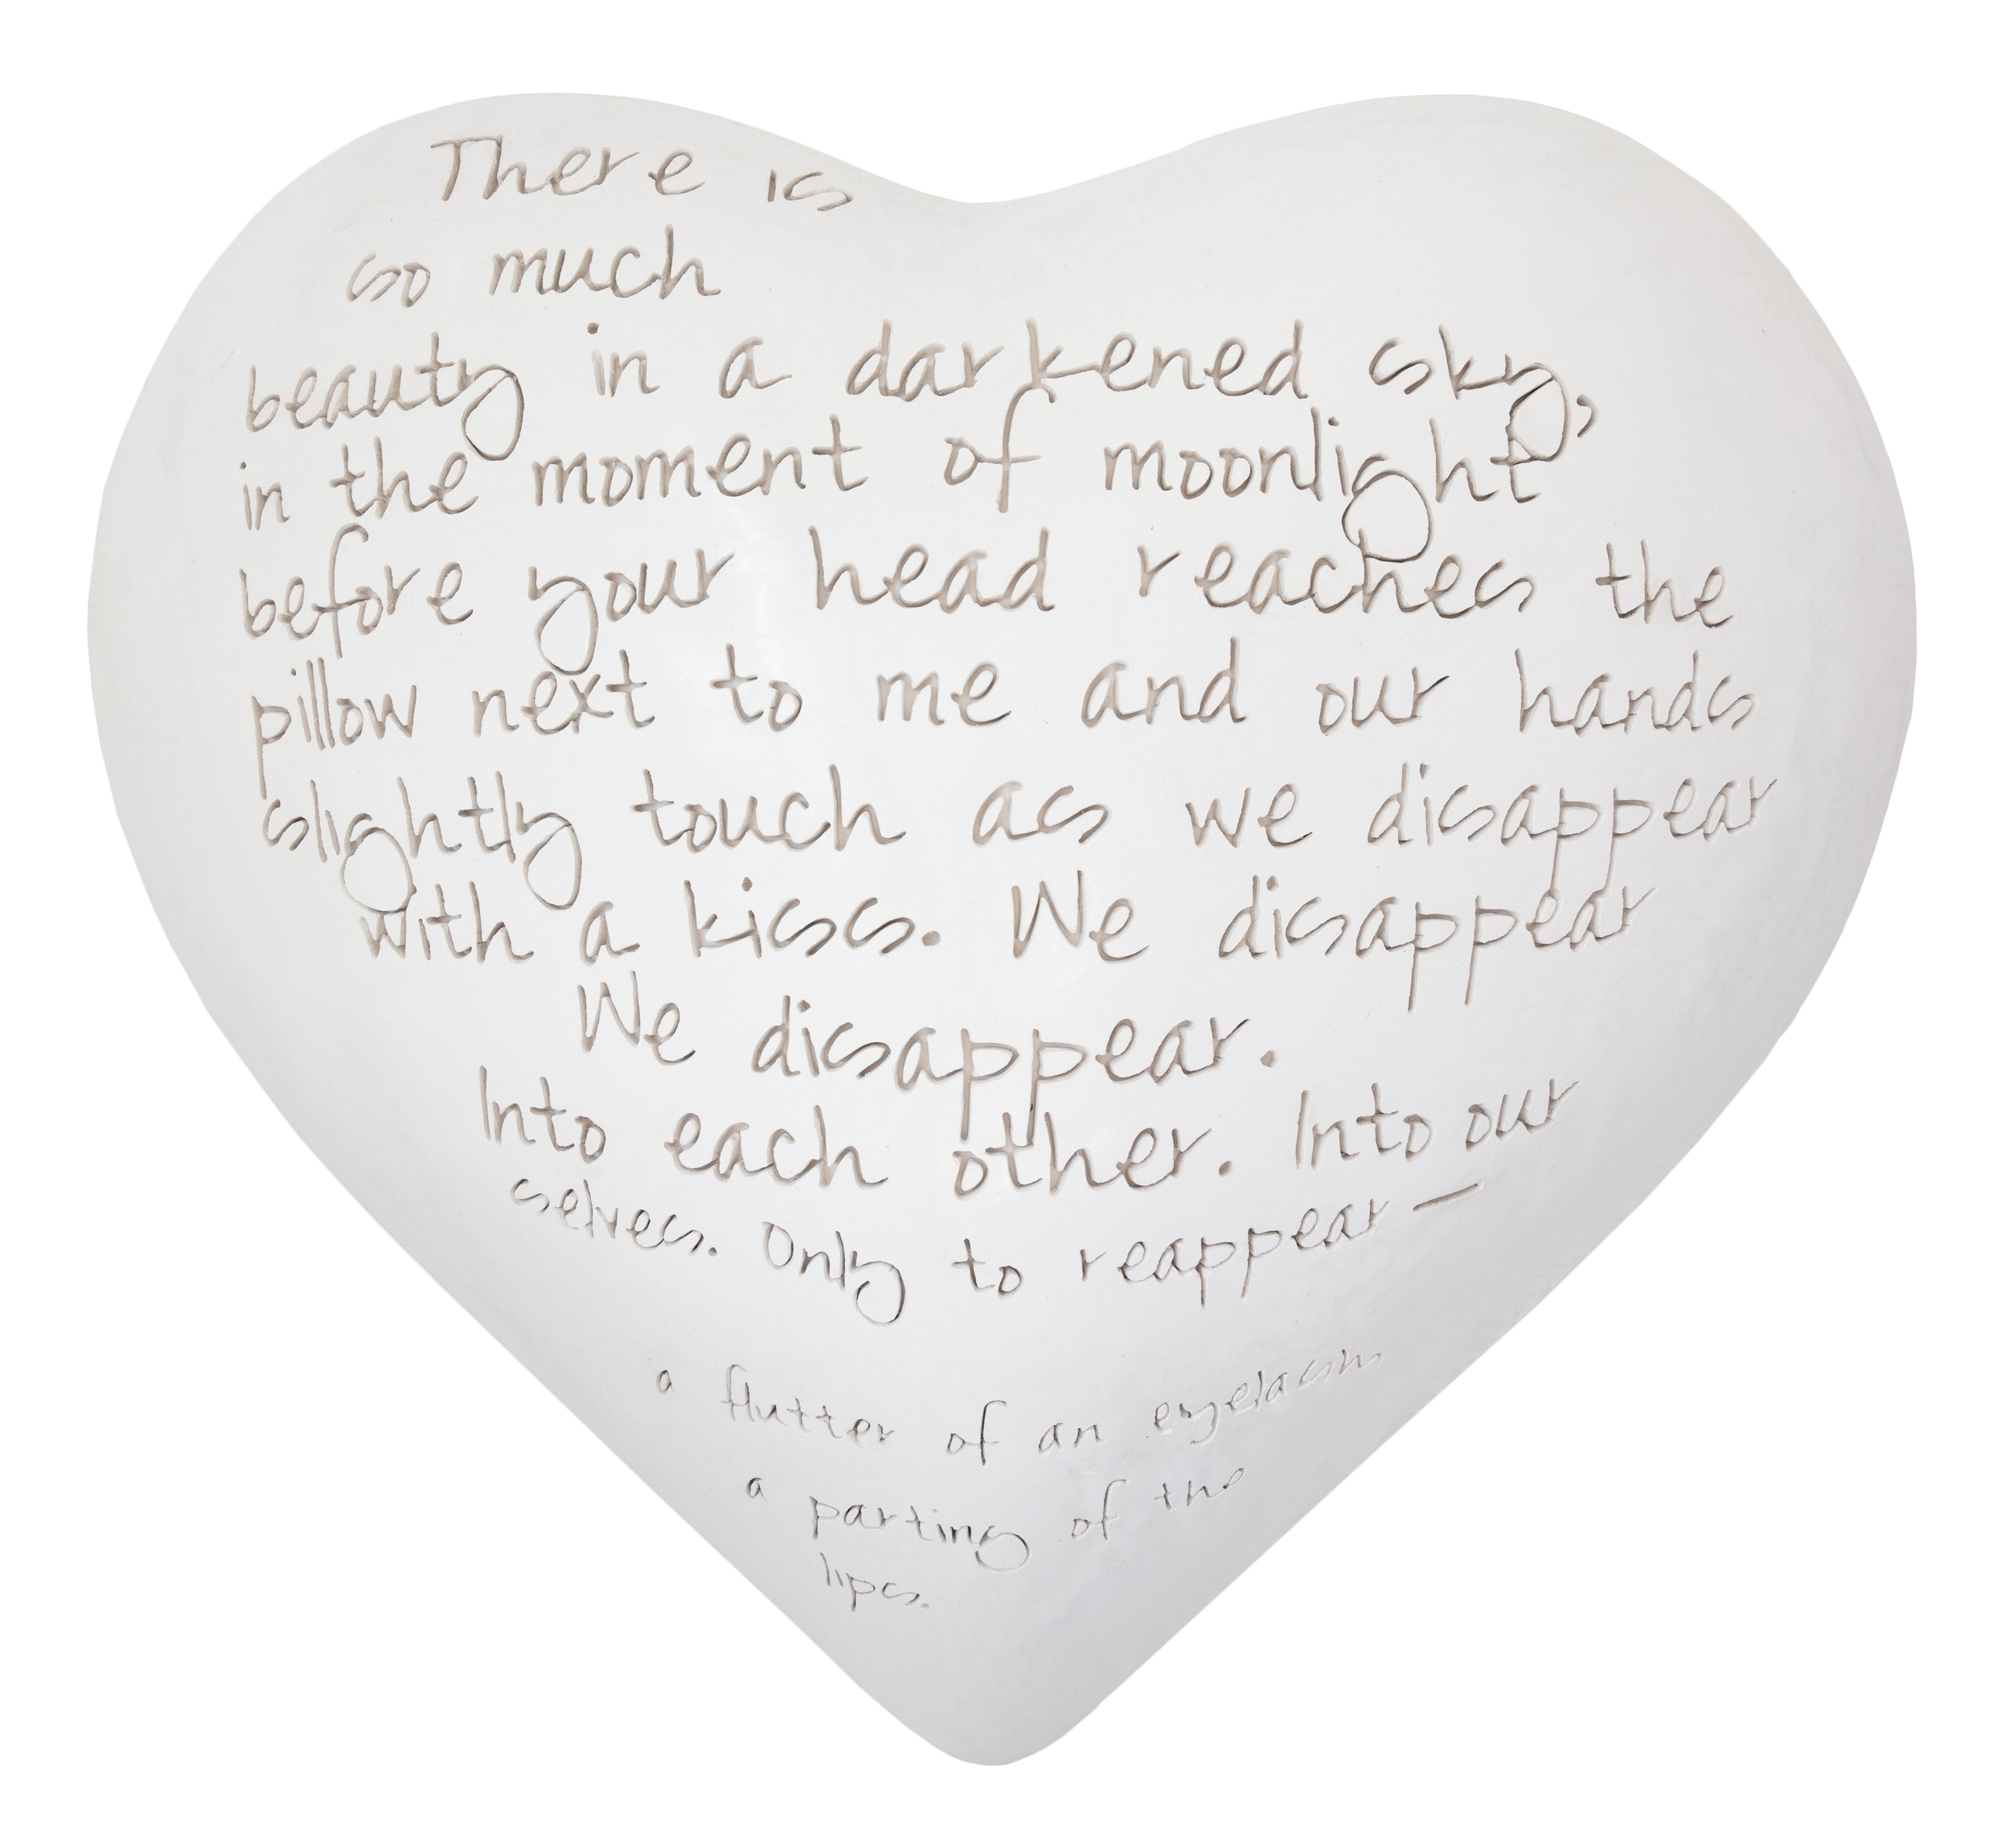 There is
so much
beauty in a darkened sky,
in the moment of moonlight
before your head reaches the
pillow next to me and our hands
slightly touch as we disappear
with a kiss. We disappear
We disappear.
Into each other. Into our
selves. Only to reappear —
a flutter of an eyelash
a parting of the
lips.